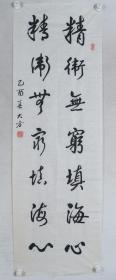 精衛無窮填海心
精衛無窮填海心
乙酉夏大方